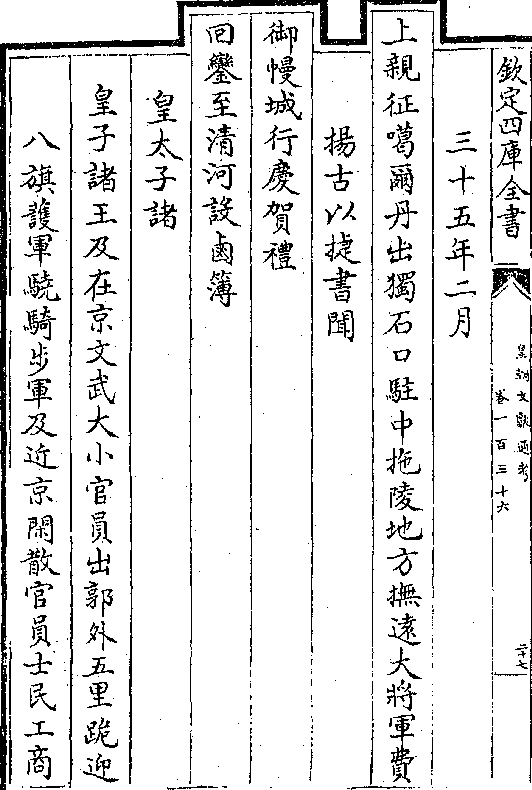 欽定四庫全書
皇朝文獻通考
卷一百三十六
二十七
三十五年二月
上親征噶爾丹出獨石口駐中拖陵地方撫遠大將軍費
揚古以捷書聞
御幔城行慶賀禮
回鑾至清河設鹵簿
皇太子諸
皇子諸王及在京文武大小官員出郭外五里跪迎
八旗護軍驍騎步軍及近京閑散官員士民工商